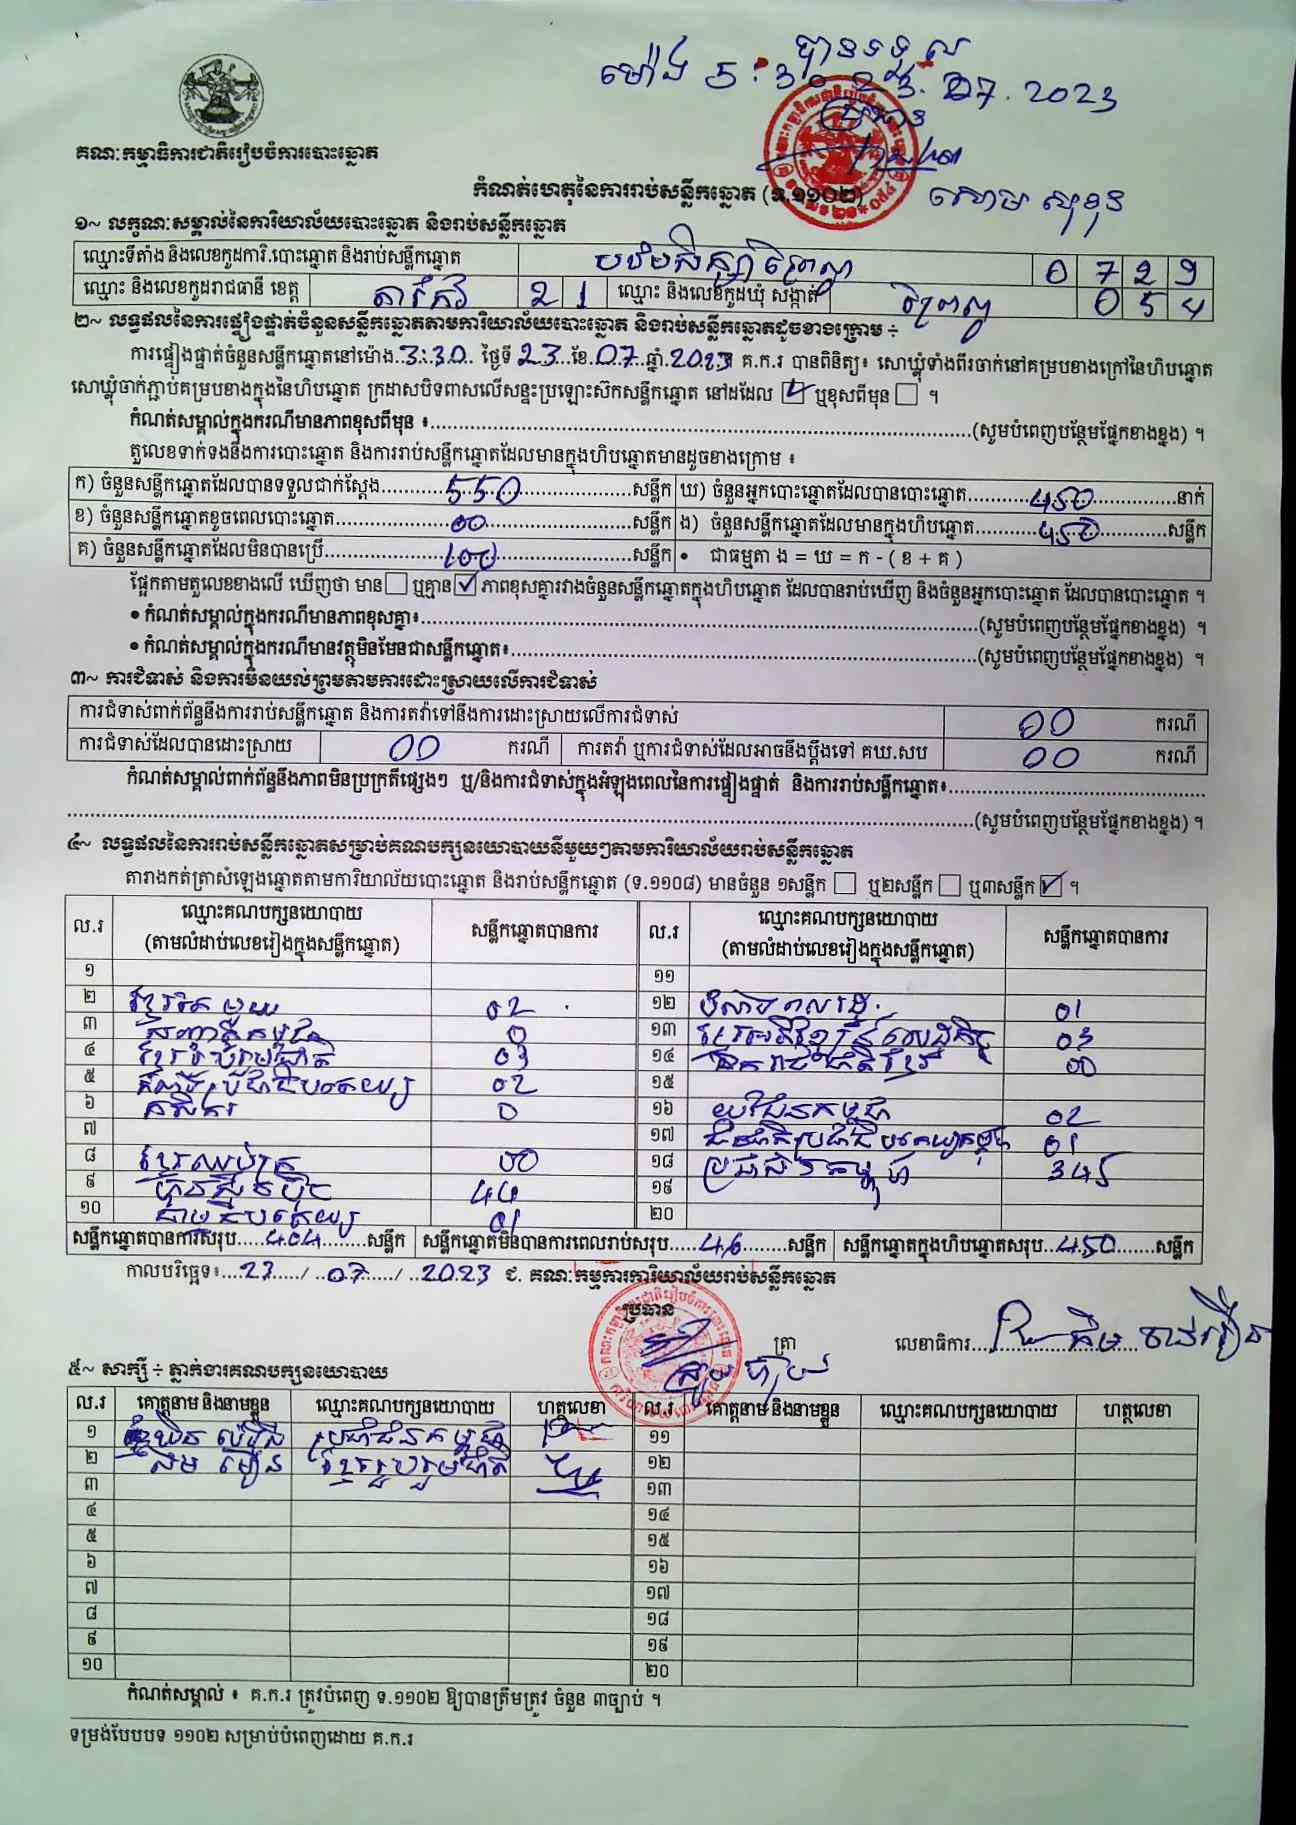 បានទទួល
ម៉ោង 5:30 23.07.2023
ប្រធាន
សោម សុខុន
គណៈកម្មាធិការជាតិរៀបចំការបោះឆ្នោត
កំណត់ហេតុនៃការរាប់សន្លឹកឆ្នោត (ទ.១១០២)
១~ លក្ខណៈសម្គាល់នៃការិយាល័យបោះឆ្នោត និងរាប់សន្លឹកឆ្នោត
ឈ្មោះទីតាំង និងលេខកូដការិ.បោះឆ្នោត និងរាប់សន្លឹកឆ្នោត 0 7 2 9
ឈ្មោះ និងលេខកូដរាជធានី ខេត្ត តាកែវ 2 1 ឈ្មោះ និងលេខកូដឃុំ សង្កាត់ 0 5 4
២~ លទ្ធផលនៃការផ្ទៀងផ្ទាត់ចំនួនសន្លឹកឆ្នោតតាមការិយាល័យបោះឆ្នោត និងរាប់សន្លឹកឆ្នោតដូចខាងក្រោម ÷
ការផ្ទៀងផ្ទាត់ចំនួនសន្លឹកឆ្នោតនៅម៉ោង 3:30 ថ្ងៃទី 23 ខែ 07 ឆ្នាំ 2023 គ.ក.រ បានពិនិត្យ៖ សោឃ្លុំទាំងពីរចាក់នៅគម្របខាងក្រៅនៃហិបឆ្នោត
សោឃ្លុំចាក់ភ្ជាប់គម្របខាងក្នុងនៃហិបឆ្នោត ក្រដាសបិទពាសលើសន្ទះប្រឡោះស៊កសន្លឹកឆ្នោត នៅដដែល ☑ ឬខុសពីមុន ☐ ។
កំណត់សម្គាល់ក្នុងករណីមានភាពខុសពីមុន ៖ (សូមបំពេញបន្ថែមផ្នែកខាងខ្នង) ។
តួលេខទាក់ទងនឹងការបោះឆ្នោត និងការរាប់សន្លឹកឆ្នោតដែលមានក្នុងហិបឆ្នោតមានដូចខាងក្រោម ៖
ក) ចំនួនសន្លឹកឆ្នោតដែលបានទទួលជាក់ស្តែង 550 សន្លឹក ឃ) ចំនួនអ្នកបោះឆ្នោតដែលបានបោះឆ្នោត 450 នាក់
ខ) ចំនួនសន្លឹកឆ្នោតខូចពេលបោះឆ្នោត 00 សន្លឹក ង) ចំនួនសន្លឹកឆ្នោតដែលមានក្នុងហិបឆ្នោត 450 សន្លឹក
គ) ចំនួនសន្លឹកឆ្នោតដែលមិនបានប្រើ 100 សន្លឹក • ជាធម្មតា ង = ឃ = ក - ( ខ + គ )
ផ្អែកតាមតួលេខខាងលើ ឃើញថា មាន ☐ ឬគ្មាន ☑ ភាពខុសគ្នារវាងចំនួនសន្លឹកឆ្នោតក្នុងហិបឆ្នោត ដែលបានរាប់ឃើញ និងចំនួនអ្នកបោះឆ្នោត ដែលបានបោះឆ្នោត ។
• កំណត់សម្គាល់ក្នុងករណីមានភាពខុសគ្នា៖ (សូមបំពេញបន្ថែមផ្នែកខាងខ្នង) ។
• កំណត់សម្គាល់ក្នុងករណីមានវត្ថុមិនមែនជាសន្លឹកឆ្នោត៖ (សូមបំពេញបន្ថែមផ្នែកខាងខ្នង) ។
៣~ ការជំទាស់ និងការមិនយល់ព្រមតាមការដោះស្រាយលើការជំទាស់
ការជំទាស់ពាក់ព័ន្ធនឹងការរាប់សន្លឹកឆ្នោត និងការតវ៉ាទៅនឹងការដោះស្រាយលើការជំទាស់ 00 ករណី
ការជំទាស់ដែលបានដោះស្រាយ 00 ករណី ការតវ៉ា ឬការជំទាស់ដែលអាចនឹងប្តឹងទៅ គឃ.សប 00 ករណី
កំណត់សម្គាល់ពាក់ព័ន្ធនឹងភាពមិនប្រក្រតីផ្សេងៗ ឬ/និងការជំទាស់ក្នុងអំឡុងពេលនៃការផ្ទៀងផ្ទាត់ និងការរាប់សន្លឹកឆ្នោត៖
(សូមបំពេញបន្ថែមផ្នែកខាងខ្នង) ។
៤~ លទ្ធផលនៃការរាប់សន្លឹកឆ្នោតសម្រាប់គណបក្សនយោបាយនីមួយៗតាមការិយាល័យរាប់សន្លឹកឆ្នោត
តារាងកត់ត្រាសំឡេងឆ្នោតតាមការិយាល័យបោះឆ្នោត និងរាប់សន្លឹកឆ្នោត (ទ.១១០៨) មានចំនួន ១សន្លឹក ☐ ឬ២សន្លឹក ☐ ឬ៣សន្លឹក ☑ ។
ល.រ ឈ្មោះគណបក្សនយោបាយ (តាមលំដាប់លេខរៀងក្នុងសន្លឹកឆ្នោត) សន្លឹកឆ្នោតបានការ ល.រ ឈ្មោះគណបក្សនយោបាយ (តាមលំដាប់លេខរៀងក្នុងសន្លឹកឆ្នោត) សន្លឹកឆ្នោតបានការ
១ ១១
២ ខ្មែរតែមួយ 02 ១២ 01
៣ សញ្ជាតិកម្ពុជា 0 ១៣ ខ្មែរអភិវឌ្ឍន៍សេដ្ឋកិច្ច 03
៤ ខ្មែររួបរួមជាតិ 03 ១៤ ឯករាជ្យជាតិខ្មែរ 00
៥ គំនិតប្រជាធិបតេយ្យ 02 ១៥
៦ កសិករ 0 ១៦ យុវជនកម្ពុជា 02
៧ ១៧ ជនជាតិប្រជាធិបតេយ្យកម្ពុជា 01
៨ ខ្មែរឈប់ក្រ 00 ១៨ ប្រជាជនកម្ពុជា 345
៩ ហ្វ៊ុនស៊ិនប៉ិច 44 ១៩
១០ 01 ២០
សន្លឹកឆ្នោតបានការសរុប 404 សន្លឹក សន្លឹកឆ្នោតមិនបានការពេលរាប់សរុប 46 សន្លឹក សន្លឹកឆ្នោតក្នុងហិបឆ្នោតសរុប 450 សន្លឹក
កាលបរិច្ឆេទ៖ 23 / 07 / 2023 ជ. គណៈកម្មការការិយាល័យរាប់សន្លឹកឆ្នោត
ប្រធាន
ត្រា លេខាធិការ
៥~ សាក្សី ÷ ភ្នាក់ងារគណបក្សនយោបាយ
ល.រ គោត្តនាម និងនាមខ្លួន ឈ្មោះគណបក្សនយោបាយ ហត្ថលេខា ល.រ គោត្តនាម និងនាមខ្លួន ឈ្មោះគណបក្សនយោបាយ ហត្ថលេខា
១ ប្រជាជនកម្ពុជា ១១
២ សម មឿន ខ្មែររួបរួមជាតិ ១២
៣ ១៣
៤ ១៤
៥ ១៥
៦ ១៦
៧ ១៧
៨ ១៨
៩ ១៩
១០ ២០
កំណត់សម្គាល់ ៖ គ.ក.រ ត្រូវបំពេញ ទ.១១០២ ឱ្យបានត្រឹមត្រូវ ចំនួន ៣ច្បាប់ ។
ទម្រង់បែបបទ ១១០២ សម្រាប់បំពេញដោយ គ.ក.រ